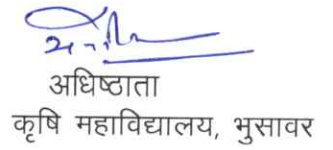 अधिष्ठाता
कृषि महाविद्यालय, भुसावर